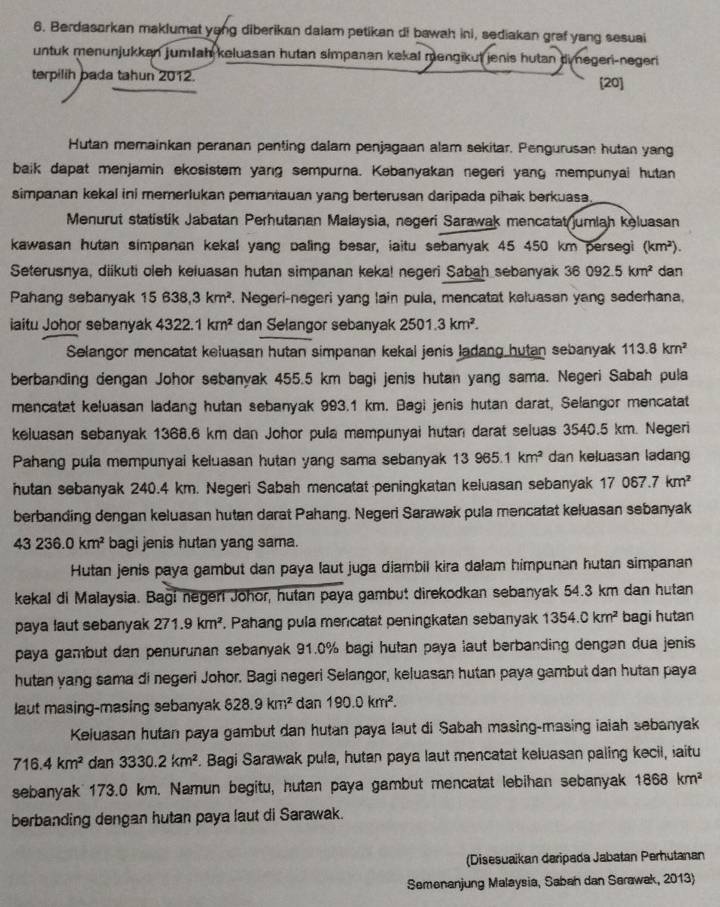 6. Berdasarkan maklumat yang diberikan dalam petikan di bawah ini, sediakan graf yang sesuai
untuk menunjukkan jumlah keluasan hutan simpanan kekal mengikut jenis hutan di negeri-negeri
terpilih pada tahun 2012.
[20]
Hutan memainkan peranan penting dalam penjagaan alam sekitar. Pengurusan hutan yang
baik dapat menjamin ekosistem yang sempurna. Kebanyakan negeri yang mempunyai hutan
simpanan kekal ini memerlukan pemantauan yang berterusan daripada pihak berkuasa.
Menurut statistik Jabatan Perhutanan Malaysia, negeri Sarawak mencatat jumlah keluasan
kawasan hutan simpanan kekal yang paling besar, iaitu sebanyak 45 450 km persegi (km²).
Seterusnya, diikuti oleh keluasan hutan simpanan kekal negeri Sabah sebanyak 36 092.5 km² dan
Pahang sebanyak 15 638,3 km². Negeri-negeri yang lain pula, mencatat keluasan yang sederhana,
iaitu Johor sebanyak 4322.1 km² dan Selangor sebanyak 2501.3 km².
Selangor mencatat keluasan hutan simpanan kekal jenis ladang hutan sebanyak 113.8 km²
berbanding dengan Johor sebanyak 455.5 km bagi jenis hutan yang sama. Negeri Sabah pula
mencatat keluasan ladang hutan sebanyak 993.1 km. Bagi jenis hutan darat, Selangor mencatat
keluasan sebanyak 1368.6 km dan Johor pula mempunyai hutan darat seluas 3540.5 km. Negeri
Pahang pula mempunyai keluasan hutan yang sama sebanyak 13 965.1 km² dan keluasan ladang
hutan sebanyak 240.4 km. Negeri Sabah mencatat peningkatan keluasan sebanyak 17 087.7 km²
berbanding dengan keluasan hutan darat Pahang. Negeri Sarawak pula mencatat keluasan sebanyak
43 236.0 km² bagi jenis hutan yang sama.
Hutan jenis paya gambut dan paya laut juga diambil kira dalam himpunan hutan simpanan
kekal di Malaysia. Bagi negeri Johor, hutan paya gambut direkodkan sebanyak 54.3 km dan hutan
paya laut sebanyak 271.9 km². Pahang pula mencatat peningkatan sebanyak 1354.0 km² bagi hutan
paya gambut dan penurunan sebanyak 91.0% bagi hutan paya laut berbanding dengan dua jenis
hutan yang sama di negeri Johor. Bagi negeri Selangor, keluasan hutan paya gambut dan hutan paya
laut masing-masing sebanyak 828.9 km² dan 190.0 km².
Keluasan hutan paya gambut dan hutan paya laut di Sabah masing-masing ialah sebanyak
716.4 km² dan 3330.2 km². Bagi Sarawak pula, hutan paya laut mencatat keluasan paling kecil, iaitu
sebanyak 173.0 km. Namun begitu, hutan paya gambut mencatat lebihan sebanyak 1868 km²
berbanding dengan hutan paya laut di Sarawak.
(Disesuaikan daripada Jabatan Perhutanan
Semenanjung Malaysia, Sabah dan Sarawak, 2013)